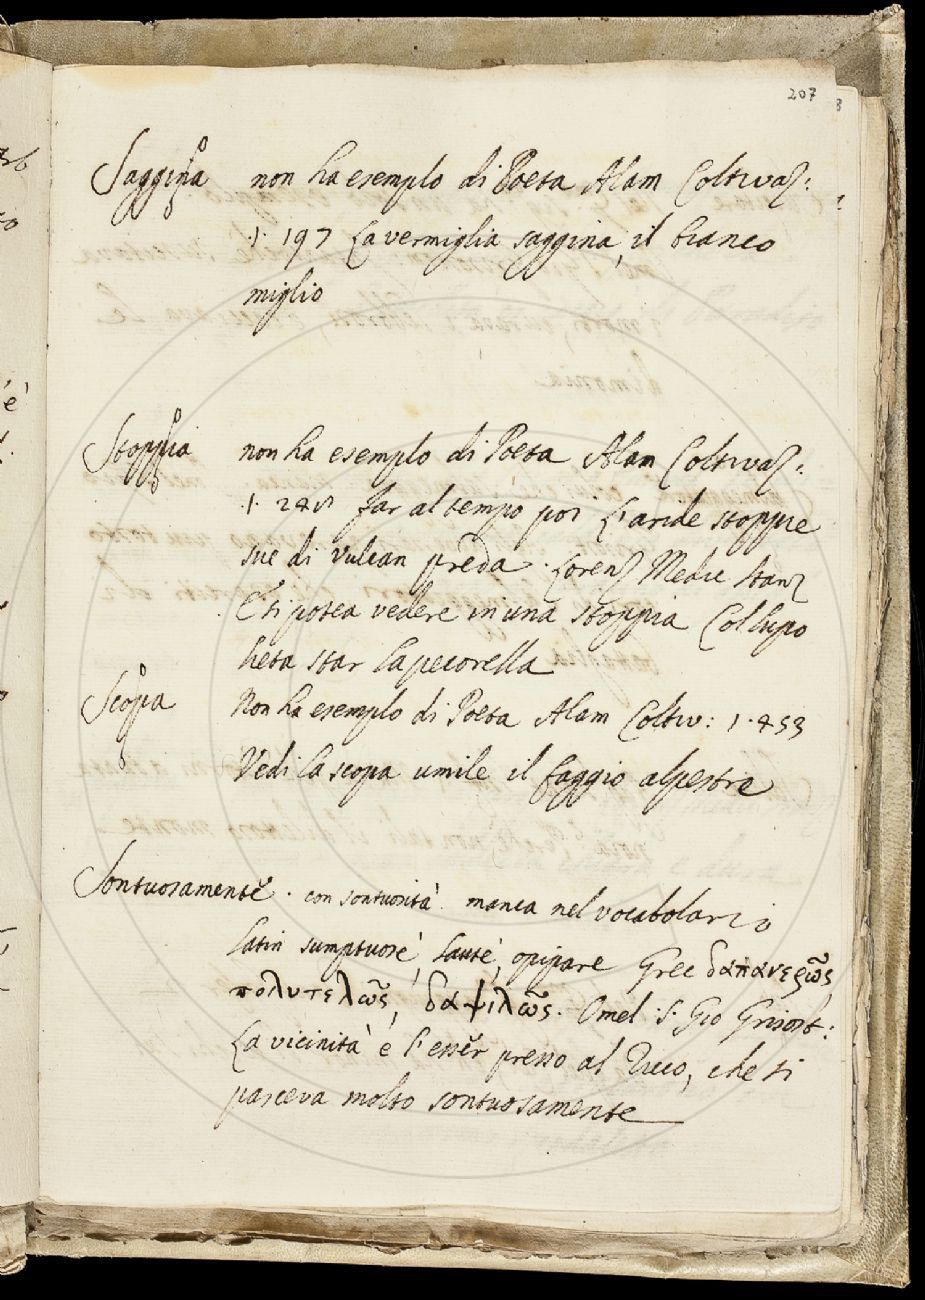 207
Saggina non ha esemplo di Poeta Alam Coltivaz:
1. 197 La vermiglia saggina, il bianco
miglio
Stoppia non ha esemplo di Poeta Alam Coltivaz:
far al tempo poi L'aride stoppie
sue di vulcan preda. Lorenz Medic Stanz
E si potea vedere in una stoppia Col lupo
lieta star la pecorella
Scopa Non ha esemplo di Poeta Alam Coltiv: 1. 453
Vedi la scopa umile il faggio alpestre
Sontuosamente. con sontuosità. manca nel vocabolario
Latin sumptuose, laute, opipare Grec δαπανερῶς,
πολυτελῶς, δαψιλῶς. Omel S. Gio Grisost:
La vicinità è l'esser presso al Ricco, che si
pasceva molto sontuosamente